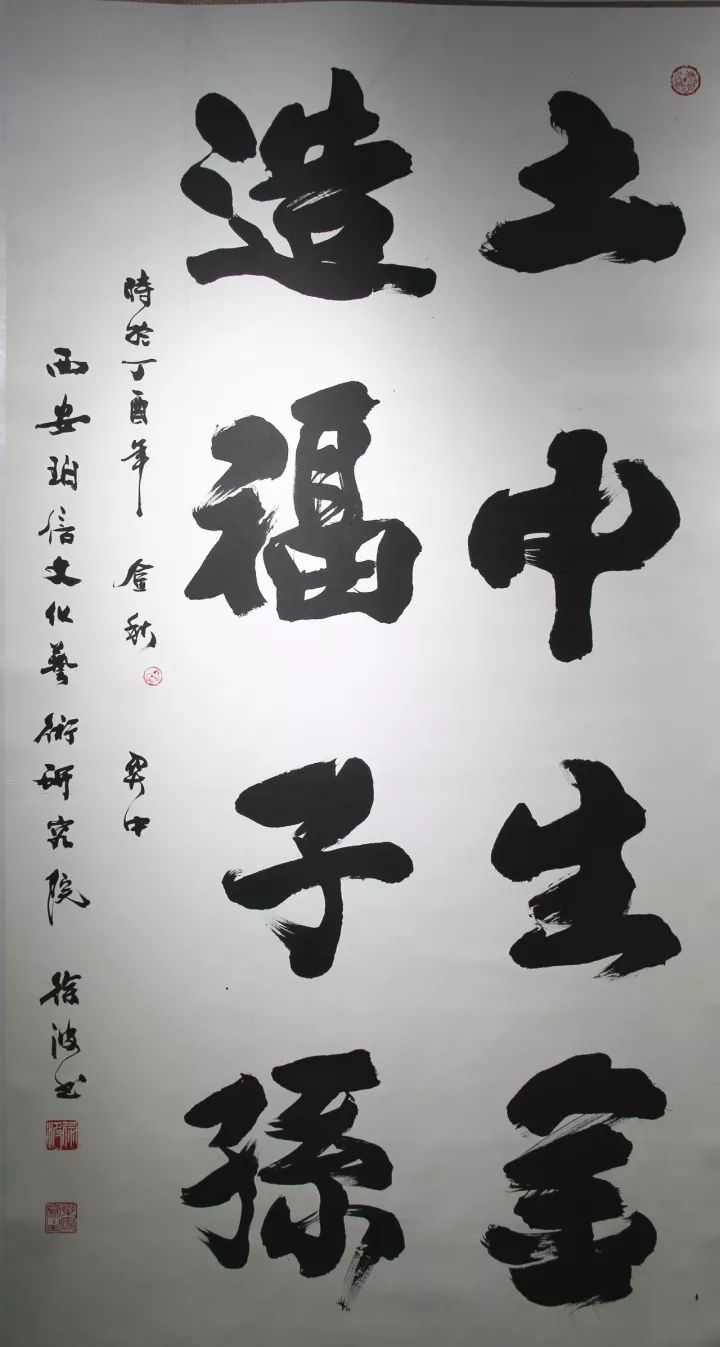 土中生金
造福子孫
時於丁酉年 金秋
西安珀信文化藝術研究院 徐波书